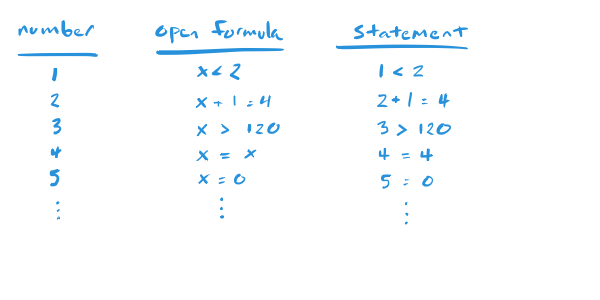 number open formula statement
1 x < 2 1 < 2
2 x + 1 = 4 2 + 1 = 4
3 x > 120 3 > 120
4 x = x 4 = 4
5 x = 0 5 = 0
⋮ ⋮ ⋮